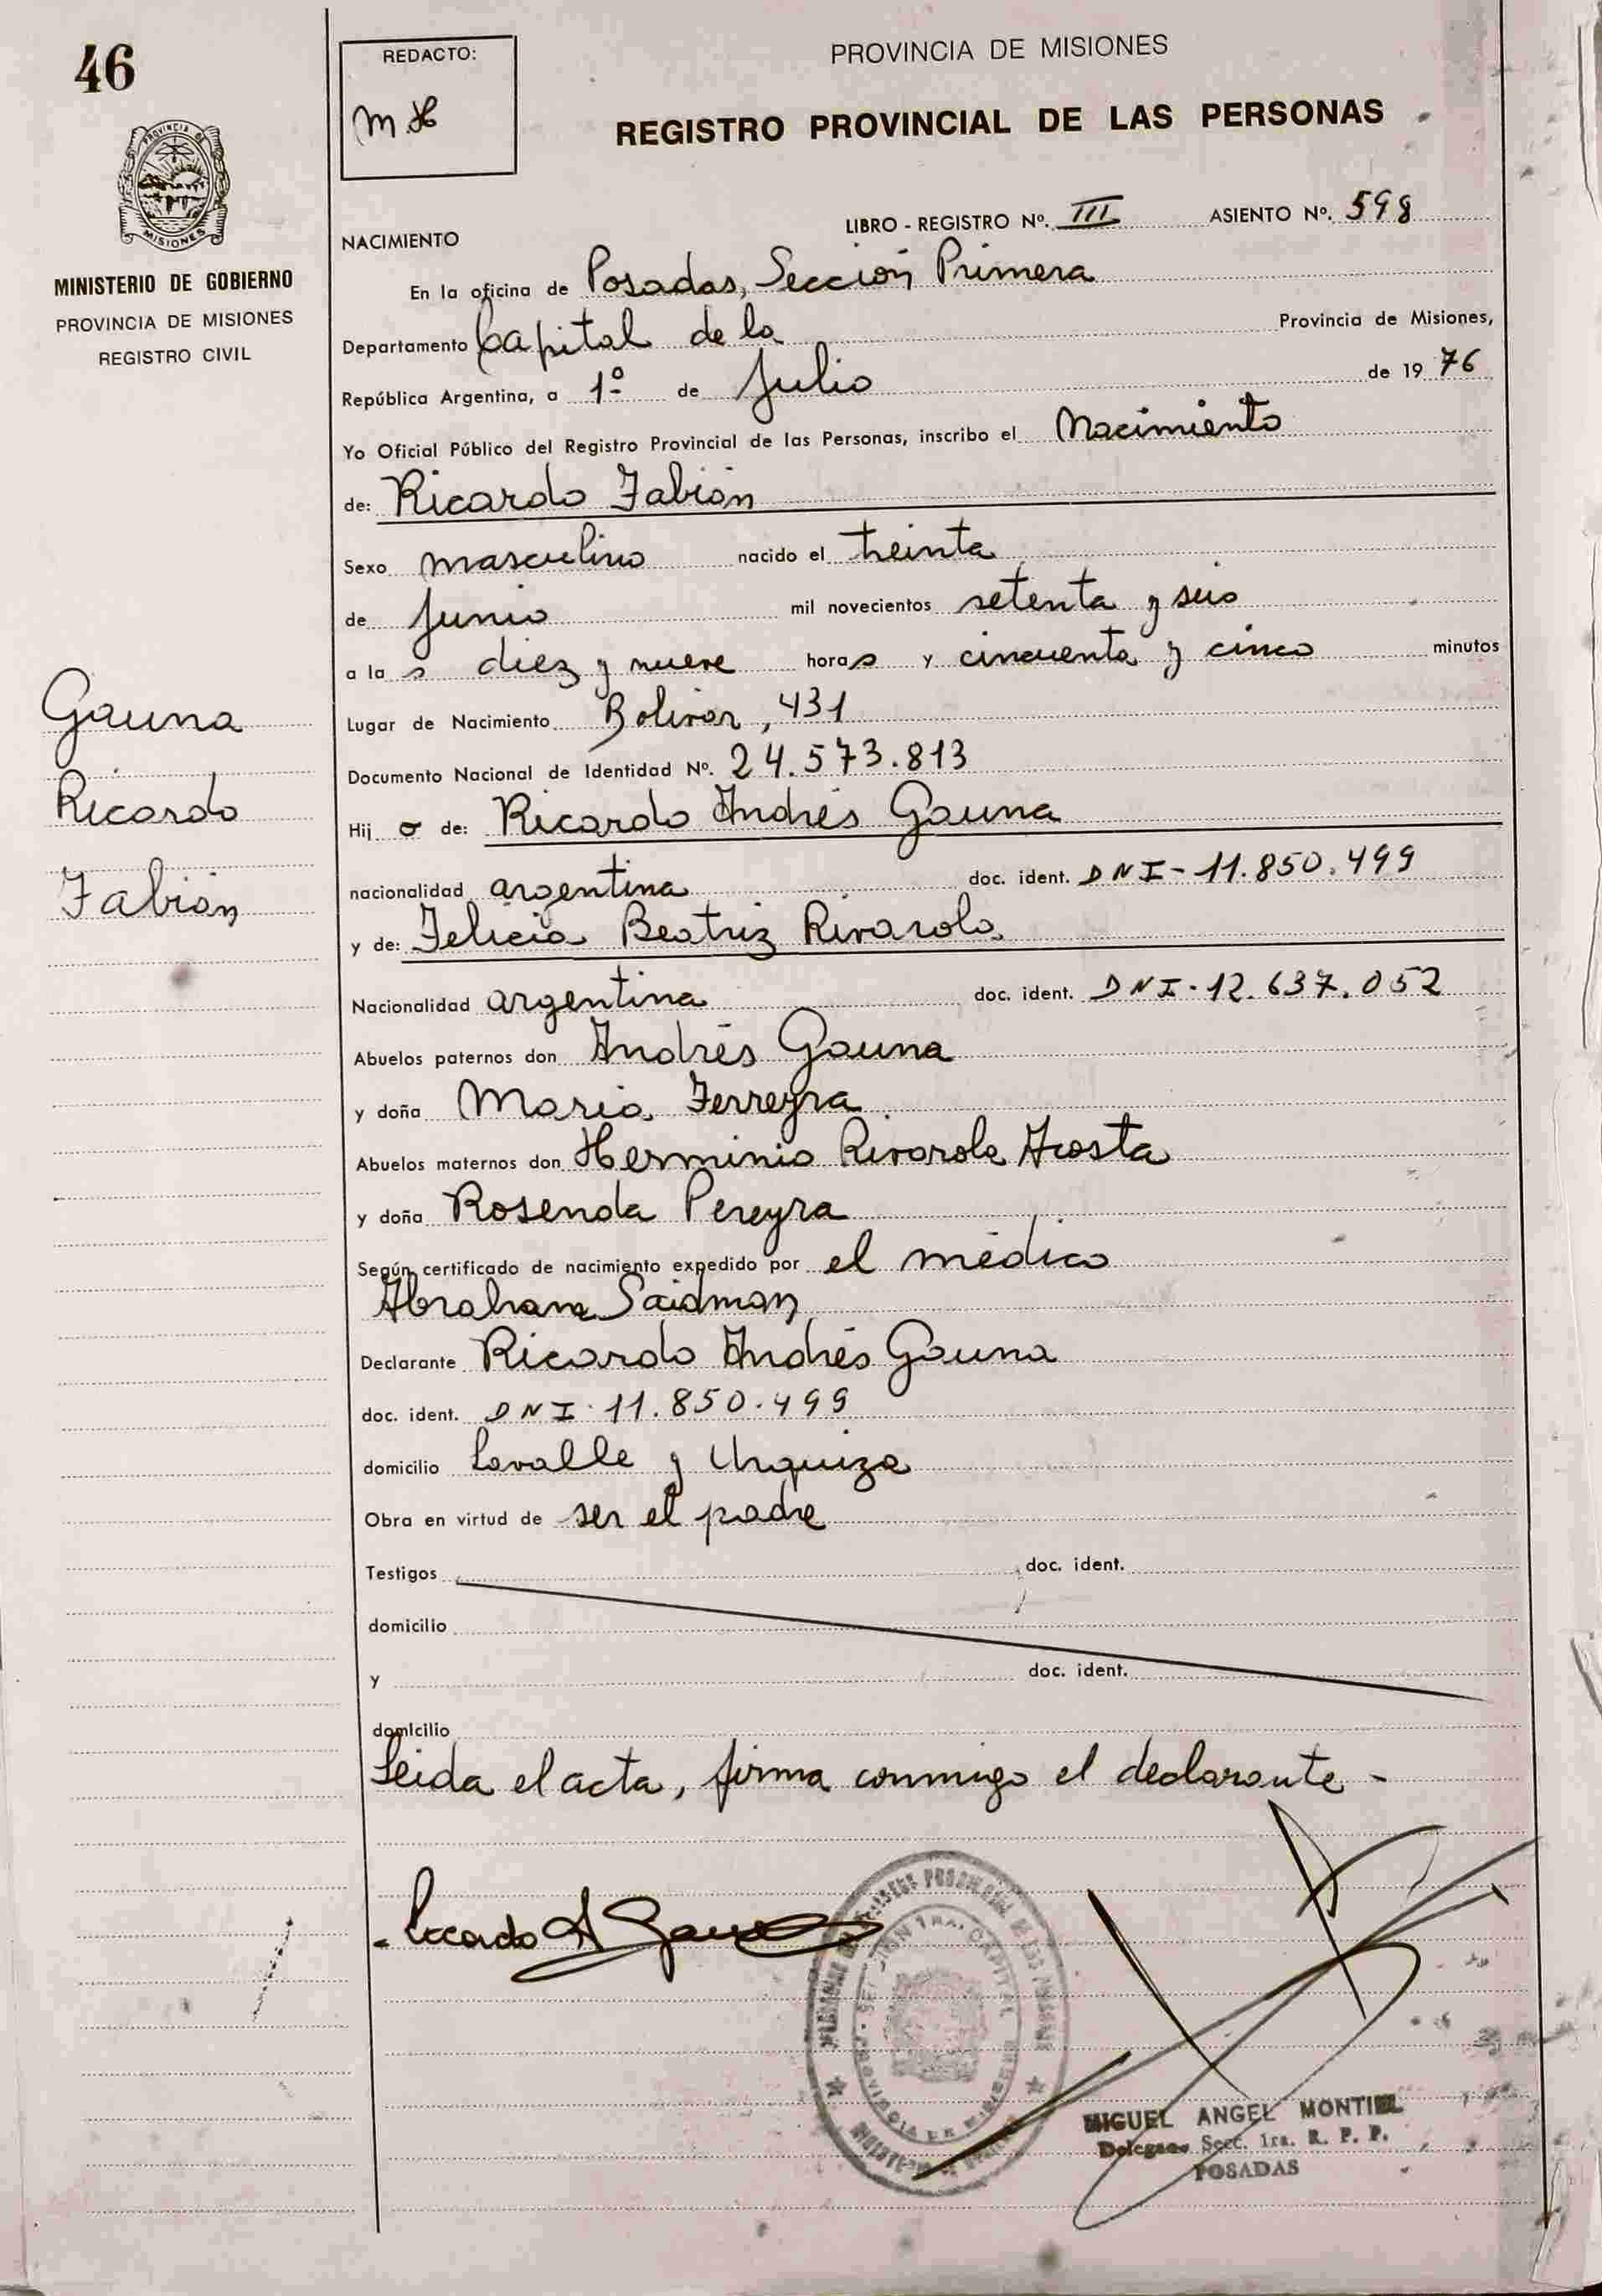 46
REDACTO:
MH
PROVINCIA DE MISIONES
REGISTRO PROVINCIAL DE LAS PERSONAS
PROVINCIA DE
MISIONES
MINISTERIO DE GOBIERNO
PROVINCIA DE MISIONES
REGISTRO CIVIL
LIBRO - REGISTRO Nº. III ASIENTO Nº. 598
NACIMIENTO
En la oficina de Posadas, Sección Primera
Departamento Capital de la Provincia de Misiones,
República Argentina, a 1º de Julio de 1976
Yo Oficial Público del Registro Provincial de las Personas, inscribo el Nacimiento
de: Ricardo Fabián
Sexo masculino nacido el treinta
de Junio mil novecientos setenta y seis
a las diez y nueve horas y cincuenta y cinco minutos
Lugar de Nacimiento Bolivar, 431
Documento Nacional de Identidad Nº. 24.573.813
Hijo de: Ricardo Andrés Gauna
nacionalidad argentina doc. ident. DNI-11.850.499
y de: Felicia Beatriz Rivarola
Nacionalidad argentina doc. ident. DNI-12.637.052
Abuelos paternos don Andrés Gauna
y doña Maria Ferreyra
Abuelos maternos don Herminio Rivarola Acosta
y doña Rosenda Pereyra
Según certificado de nacimiento expedido por el médico
Abraham Saidman
Declarante Ricardo Andrés Gauna
doc. ident. DNI-11.850.499
domicilio Lavalle y Urquiza
Obra en virtud de ser el padre
Testigos doc. ident.
domicilio
y doc. ident.
domicilio
Leida el acta, firma conmigo el declarante -
Gauna
Ricardo
Fabián
Ricardo A Gauna
MIGUEL ANGEL MONTIEL
Delegado Secc. 1ra. R. P. P.
POSADAS